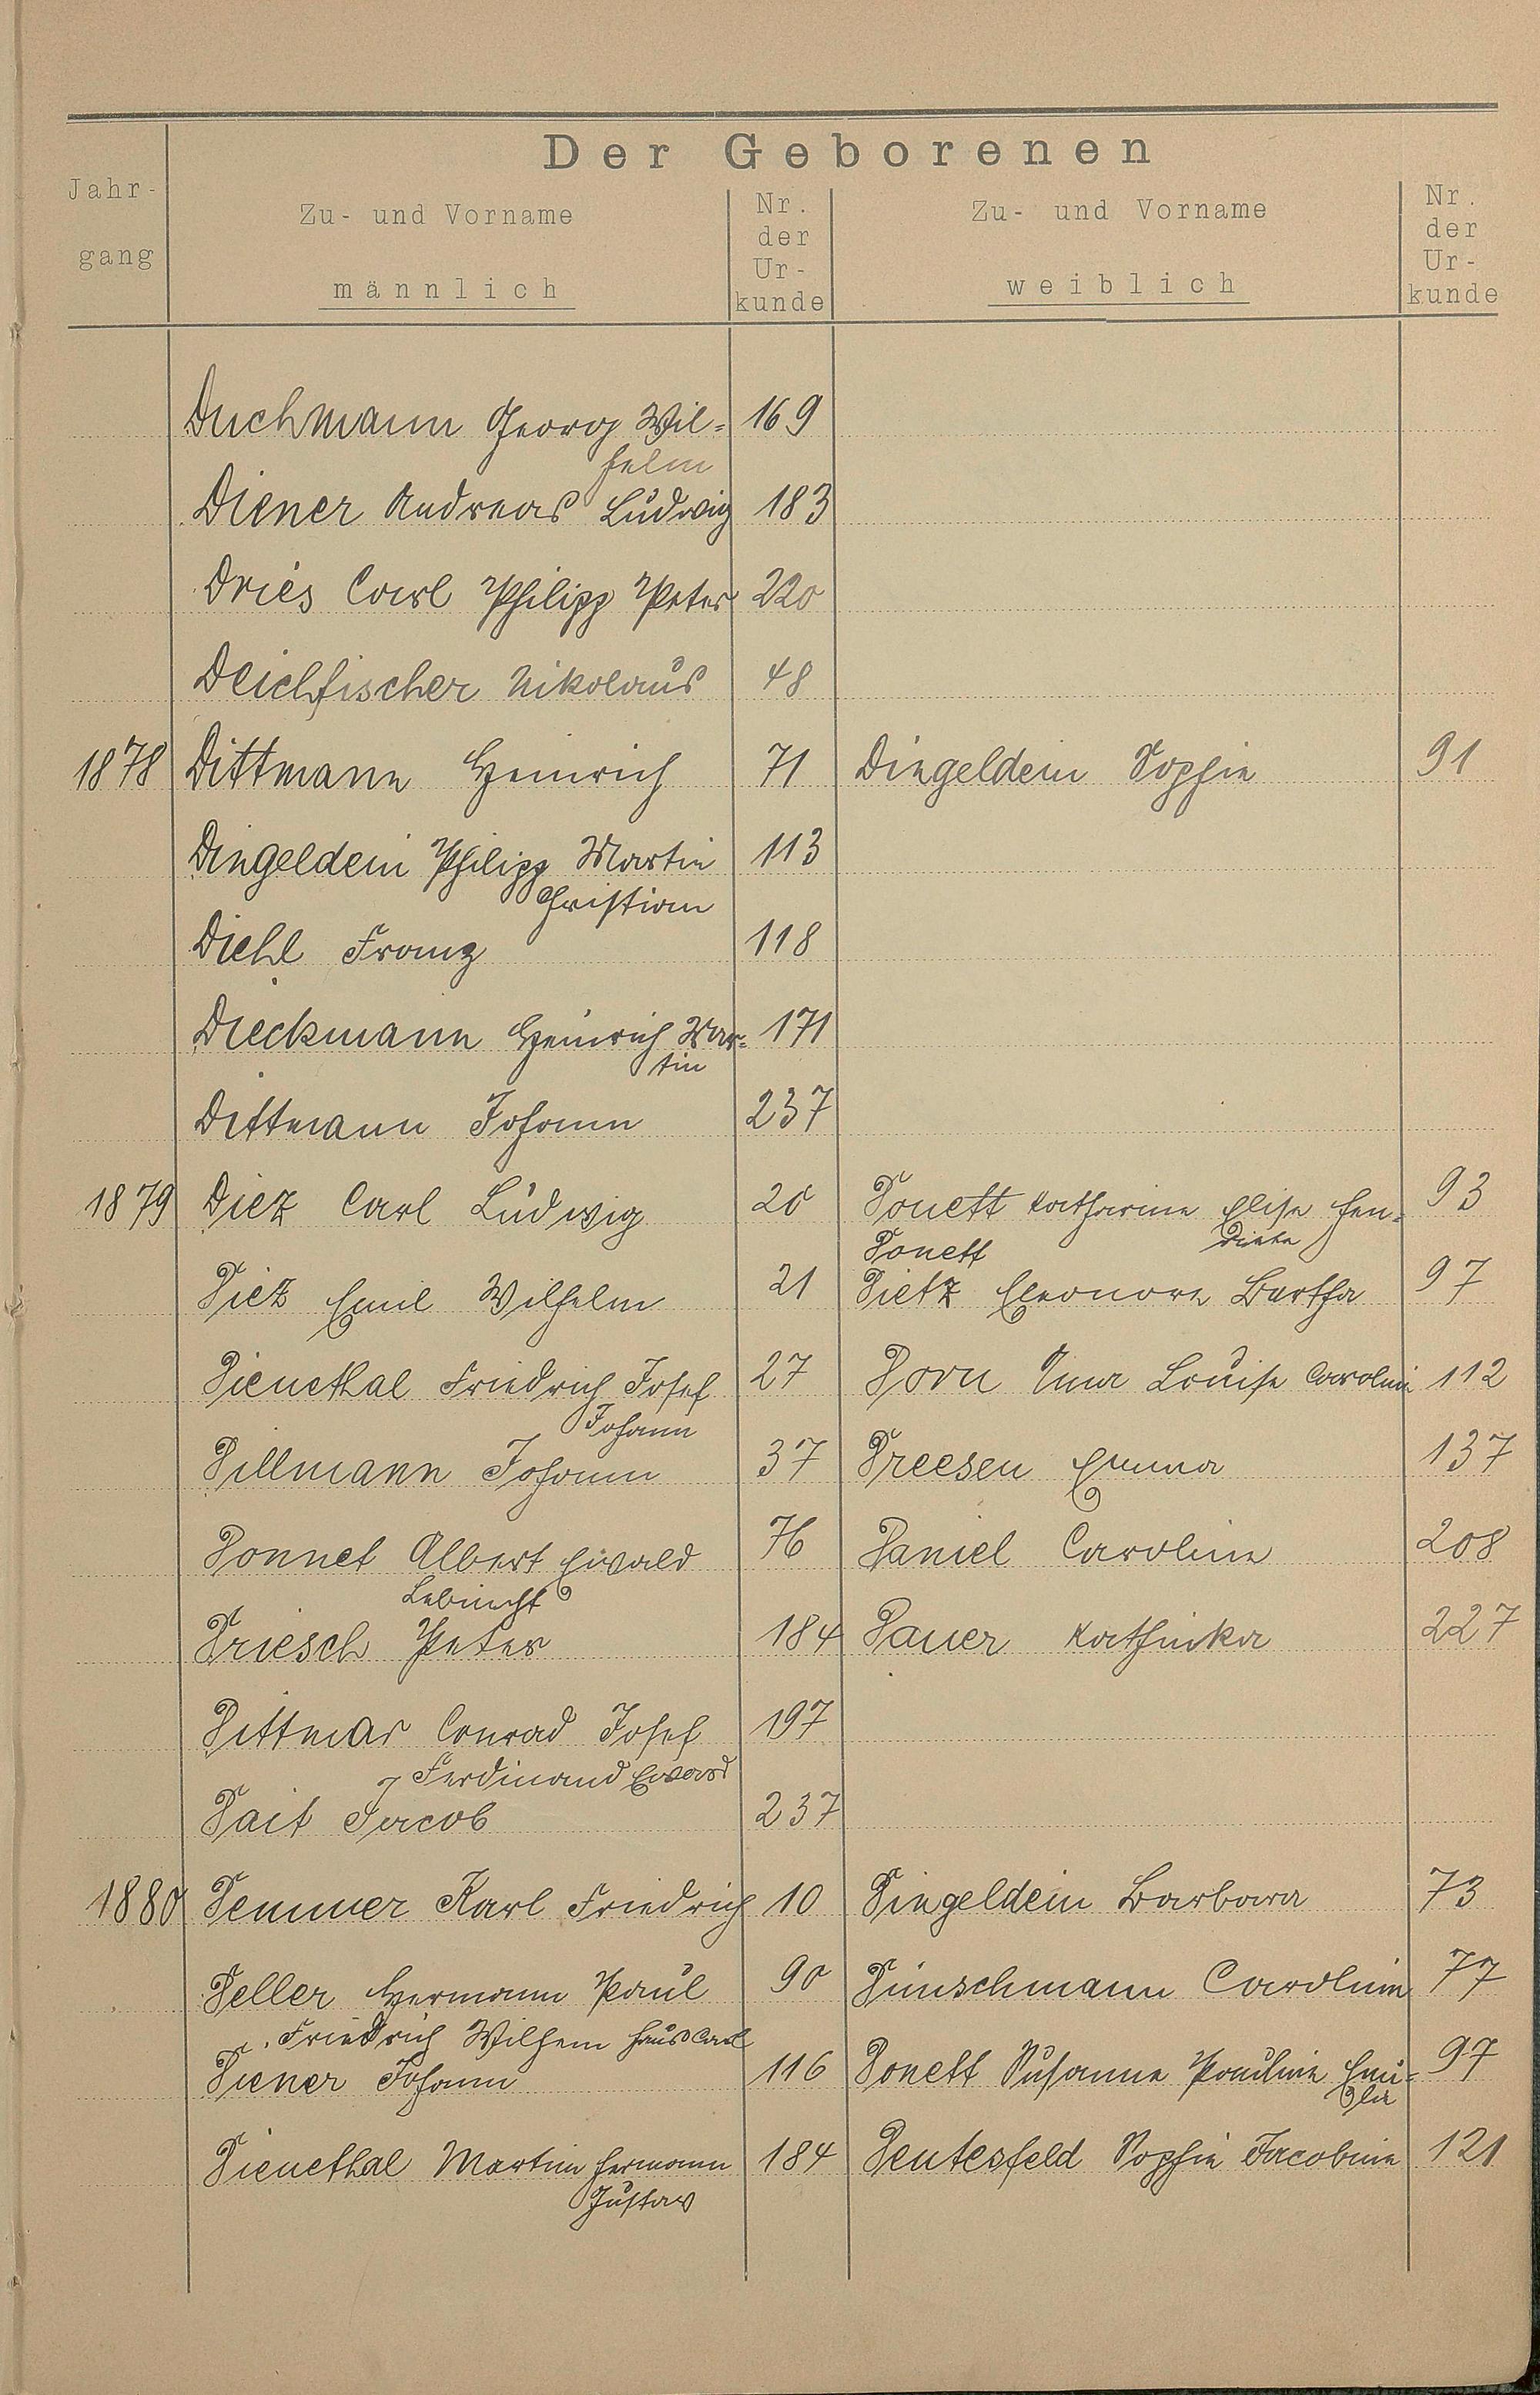 Der Geborenen
Jahr-
gang
Zu- und Vorname
männlich
Nr.
der
Ur-
kunde
Zu- und Vorname
weiblich
Nr.
der
Ur-
kunde
Duchmann Georg Wil= 169
helm
Diener Andreas Ludwig 183
Dries Carl Philipp Peter 220
Deichfischer Nikolaus 48
1878 Dittmann Heinrich 71 Dingeldein Sophie 91
Dingeldein Philipp Martin 113
Christian
Diehl Franz 118
Dieckmann Heinrich Mar= 171
tin
Dittmann Johann 237
1879 Diez Carl Ludwig 20 Donett Katharina Elise Hen= 93
Donett driete
Diez Emil Wilhelm 21 Dietz Eleonore Bertha 97
Dienethal Friedrich Josef 27 Dorn Anna Louise Carolin 112
Johann
Dillmann Johann 37 Dreesen Emma 137
Donnet Albert Ewald 76 Daniel Caroline 208
Lebrecht
Driesch Peter 184 Dauer Kathinka 227
Dittmar Conrad Josef 197
Ferdinand Eduard
Dait Jacob 237
1880 Demmer Karl Friedrich 10 Dingeldein Barbara 73
Deller Hermann Paul 90 Dünschmann Carolina 77
Friedrich Wilhem Hans Carl
Diener Johann 116 Donett Susanna Pauline Emi= 97
lie
Dienethal Martin Hermann 184 Dentesfeld Sophie Jacobine 121
Gustav